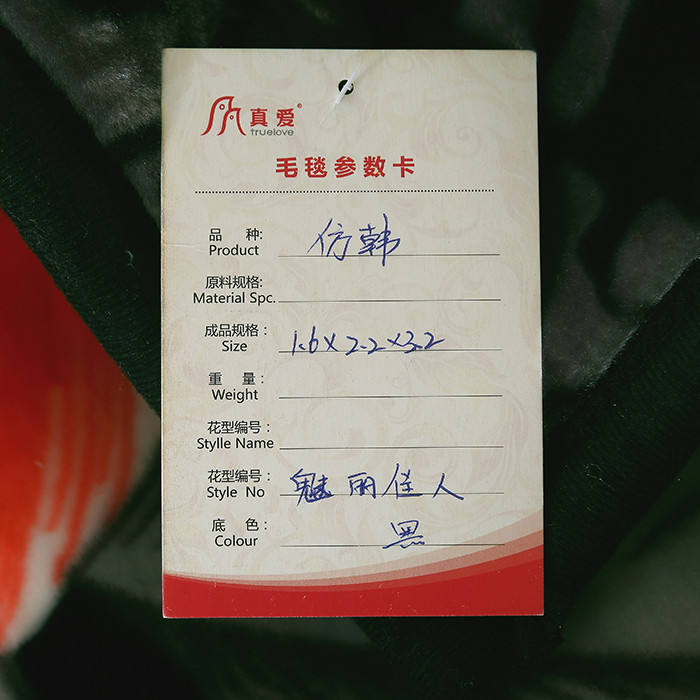 真爱®
truelove
毛毯参数卡
品 种: 仿韩
Product
原料规格:
Material Spc.
成品规格: 1.6×2.2×3.2
Size
重 量:
Weight
花型编号:
Stylle Name
花型编号: 魅丽佳人
Style No
底 色: 黑
Colour